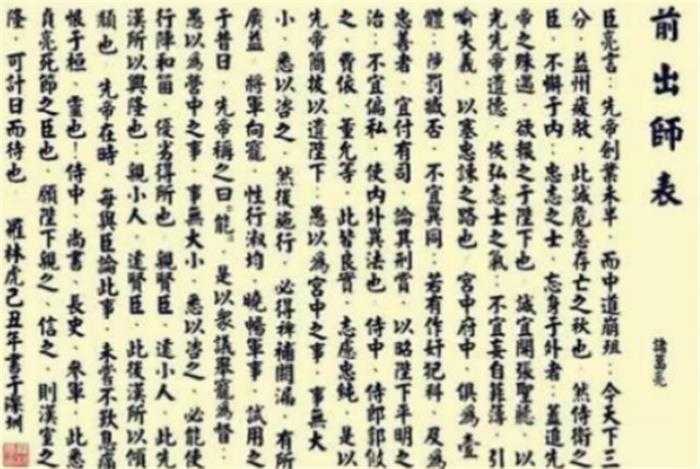 前出師表
諸葛亮
臣亮言：先帝創業未半，而中道崩殂：今天下三
分，益州疲敝，此誠危急存亡之秋也，然侍衛之
臣，不懈于內：忠志之士，忘身于外者：蓋追先
帝之殊遇，欲報之于陛下也，誠宜開張聖聽，以
光先帝遺德，恢弘志士之氣：不宜妄自菲薄，引
喻失義，以塞忠諫之路也，宮中府中，俱為壹
體：陟罰臧否，不宜異同：若有作奸犯科，及為
忠善者，宜付有司，論其刑賞，以昭陛下平明之
治：不宜偏私，使內外異法也，侍中、侍郎郭攸
之、費依、董允等，此皆良實，志慮忠純，是以
先帝簡拔以遺陛下：愚以為宮中之事，事無大
小，悉以咨之，然後施行，必得裨補闕漏，有所
廣益，將軍向寵，性行淑均，曉暢軍事，試用之
于昔日，先帝稱之曰"能"，是以衆議舉寵為督：
愚以為營中之事，事無大小，悉以咨之，必能使
行陣和睦，優劣得所也，親賢臣，遠小人，此先
漢所以興隆也：親小人，遠賢臣，此後漢所以傾
頹也，先帝在時，每與臣論此事，未嘗不歎息痛
恨于桓、靈也！侍中、尚書、長史、參軍，此悉
貞亮死節之臣也，願陛下親之、信之，則漢室之
隆，可計日而待也 羅林虎己丑年書于深圳